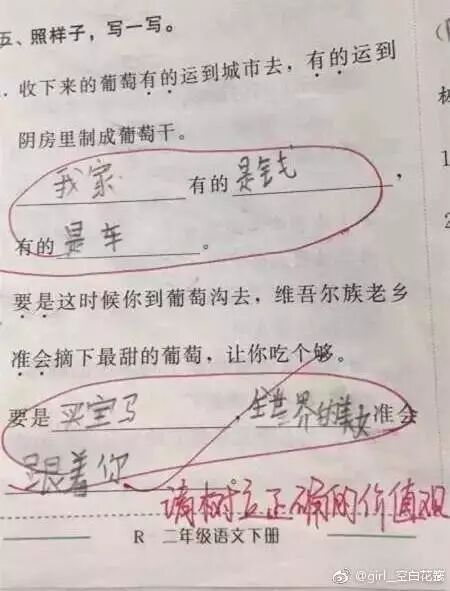 五、照样子，写一写。
收下来的葡萄有的运到城市去，有的运到
阴房里制成葡萄干。
我家有的是钱，
有的是车。
要是这时候你到葡萄沟去，维吾尔族老乡
准会摘下最甜的葡萄，让你吃个够。
要是买宝马，全世界的美女准会
跟着你
请树立正确的价值观
R 二年级语文下册
@girl_空白花簦